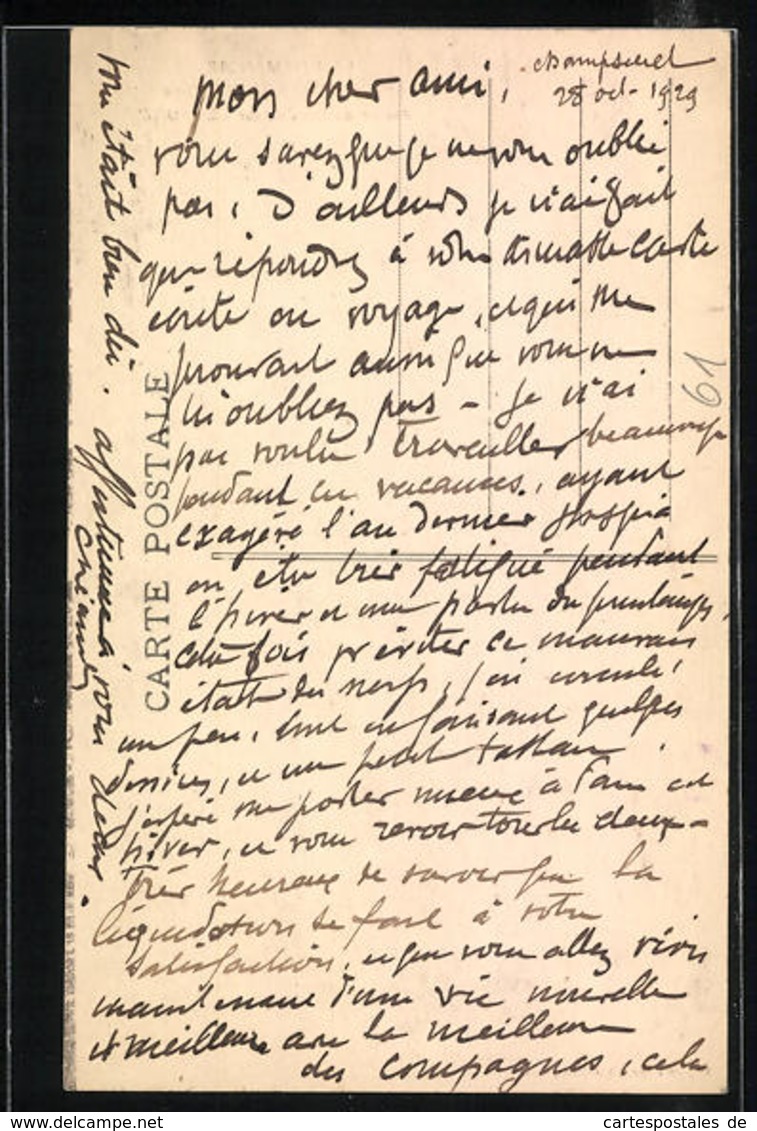 Champsecret
28 oct - 1929
mon cher ami,
vous savez que je ne vous oublie
pas, D'ailleurs je n'ai fait
que répondre à votre aimable carte
écrite en voyage, et qui me
prouvait aussi que vous ne
m'oubliez pas - Je n'ai
pas voulu travailler beaucoup
pendant ces vacances, ayant
exagéré l'an dernier
été très fatigué pendant
l'hiver et une partie du printemps,
cette fois p éviter ce mauvais
état des nerfs, j'ai
un peu, tout en faisant quelques
dessins, et un petit tableau.
J'espère me porter mieux à Paris cet
hiver, et vous revoir tous les deux -
très heureux de savoir que la
liquidation se fait à votre
satisfaction, et que vous allez vivre
maintenant d'une vie nouvelle
et meilleure avec la meilleure
des compagnes, cela
vous était bien dû. affectueux à vous deux.
CARTE POSTALE
61
www.delcampe.net
cartespostales de